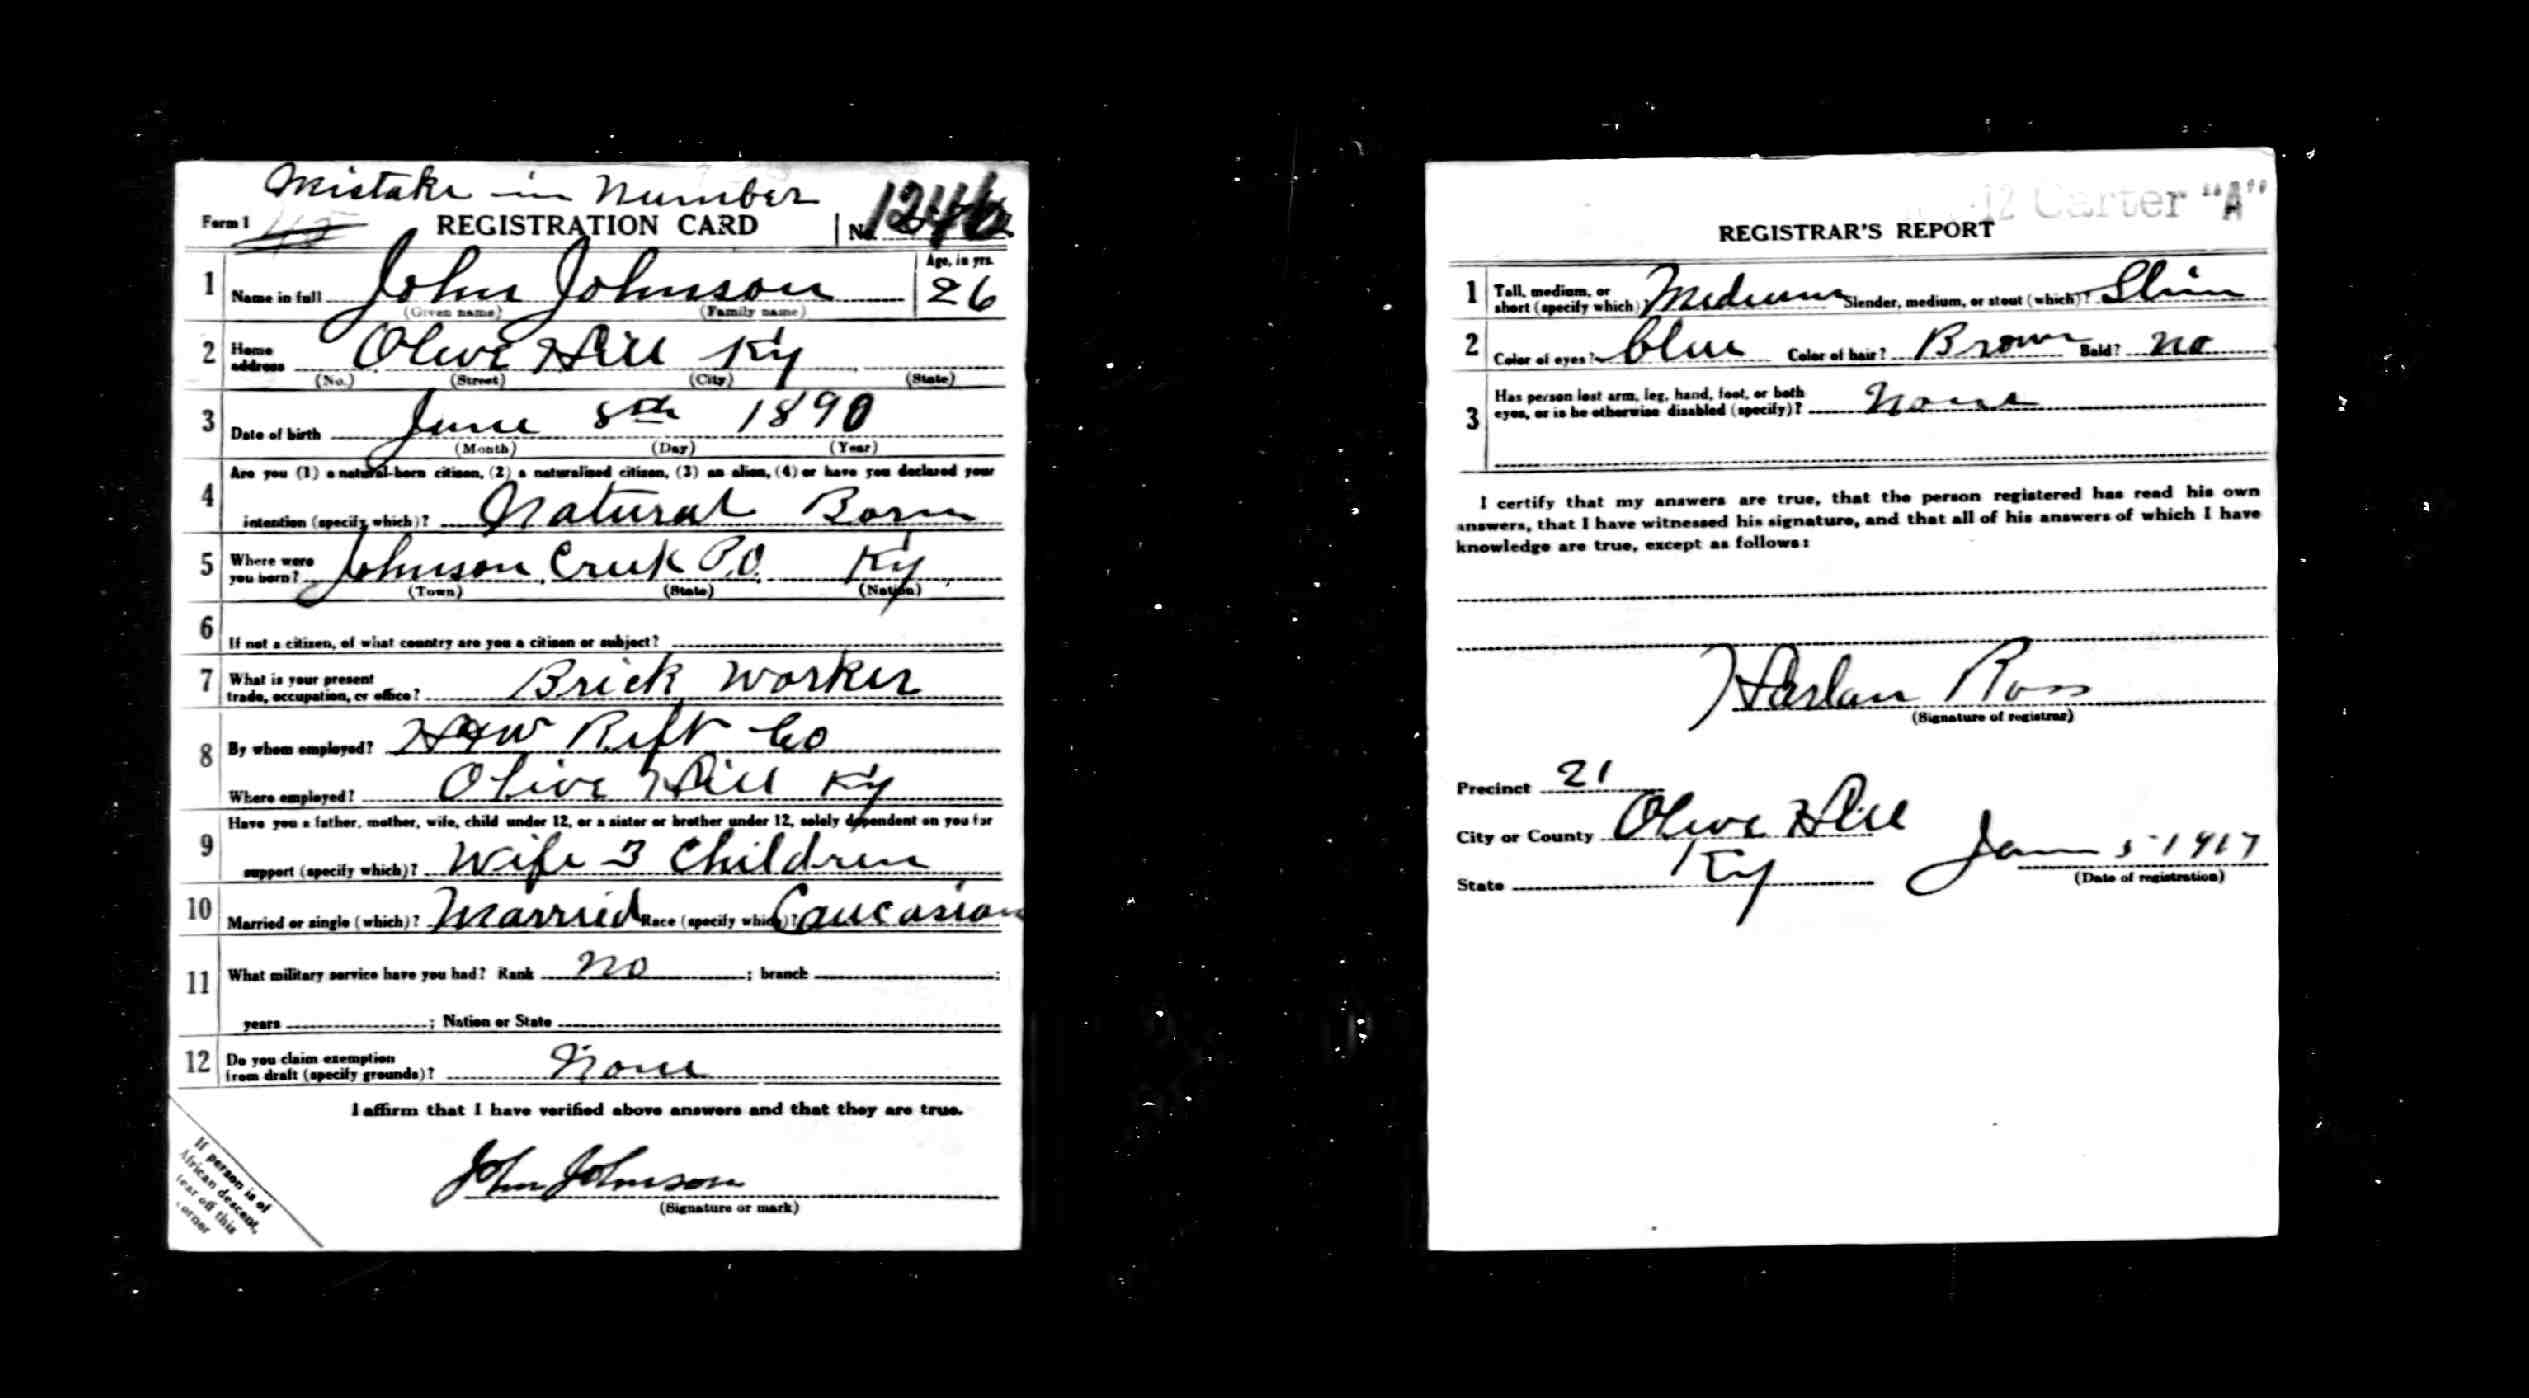 Mistake in Number
Form 1 REGISTRATION CARD No. 1246
1 Name in full John Johnson Age, in yrs. 26
(Given name) (Family name)
2 Home address Olive Hill Ky
(No.) (Street) (City) (State)
3 Date of birth June 8th 1890
(Month) (Day) (Year)
4 Are you (1) a natural-born citizen, (2) a naturalized citizen, (3) an alien, (4) or have you declared your
intention (specify which)? Natural Born
5 Where were you born? Johnson Creek P.O. Ky
(Town) (State) (Nation)
6 If not a citizen, of what country are you a citizen or subject?
7 What is your present
trade, occupation, or office? Brick Worker
8 By whom employed? H & W Reft Co
Where employed? Olive Hill Ky
9 Have you a father, mother, wife, child under 12, or a sister or brother under 12, solely dependent on you for
support (specify which)? Wife 3 Children
10 Married or single (which)? Married Race (specify which)? Caucasian
11 What military service have you had? Rank no ; branch ;
years ; Nation or State
12 Do you claim exemption
from draft (specify grounds)? None
I affirm that I have verified above answers and that they are true.
John Johnson
(Signature or mark)
If person is of
African descent,
tear off this
corner
12 Carter "A"
REGISTRAR'S REPORT
1 Tall, medium, or
short (specify which)? Medium Slender, medium, or stout (which)? Slim
2 Color of eyes? blue Color of hair? Brown Bald? no
3 Has person lost arm, leg, hand, foot, or both
eyes, or is he otherwise disabled (specify)? None
I certify that my answers are true, that the person registered has read his own
answers, that I have witnessed his signature, and that all of his answers of which I have
knowledge are true, except as follows:
Harlan Ross
(Signature of registrar)
Precinct 21
City or County Olive Hill
State Ky
Jan 5 1917
(Date of registration)